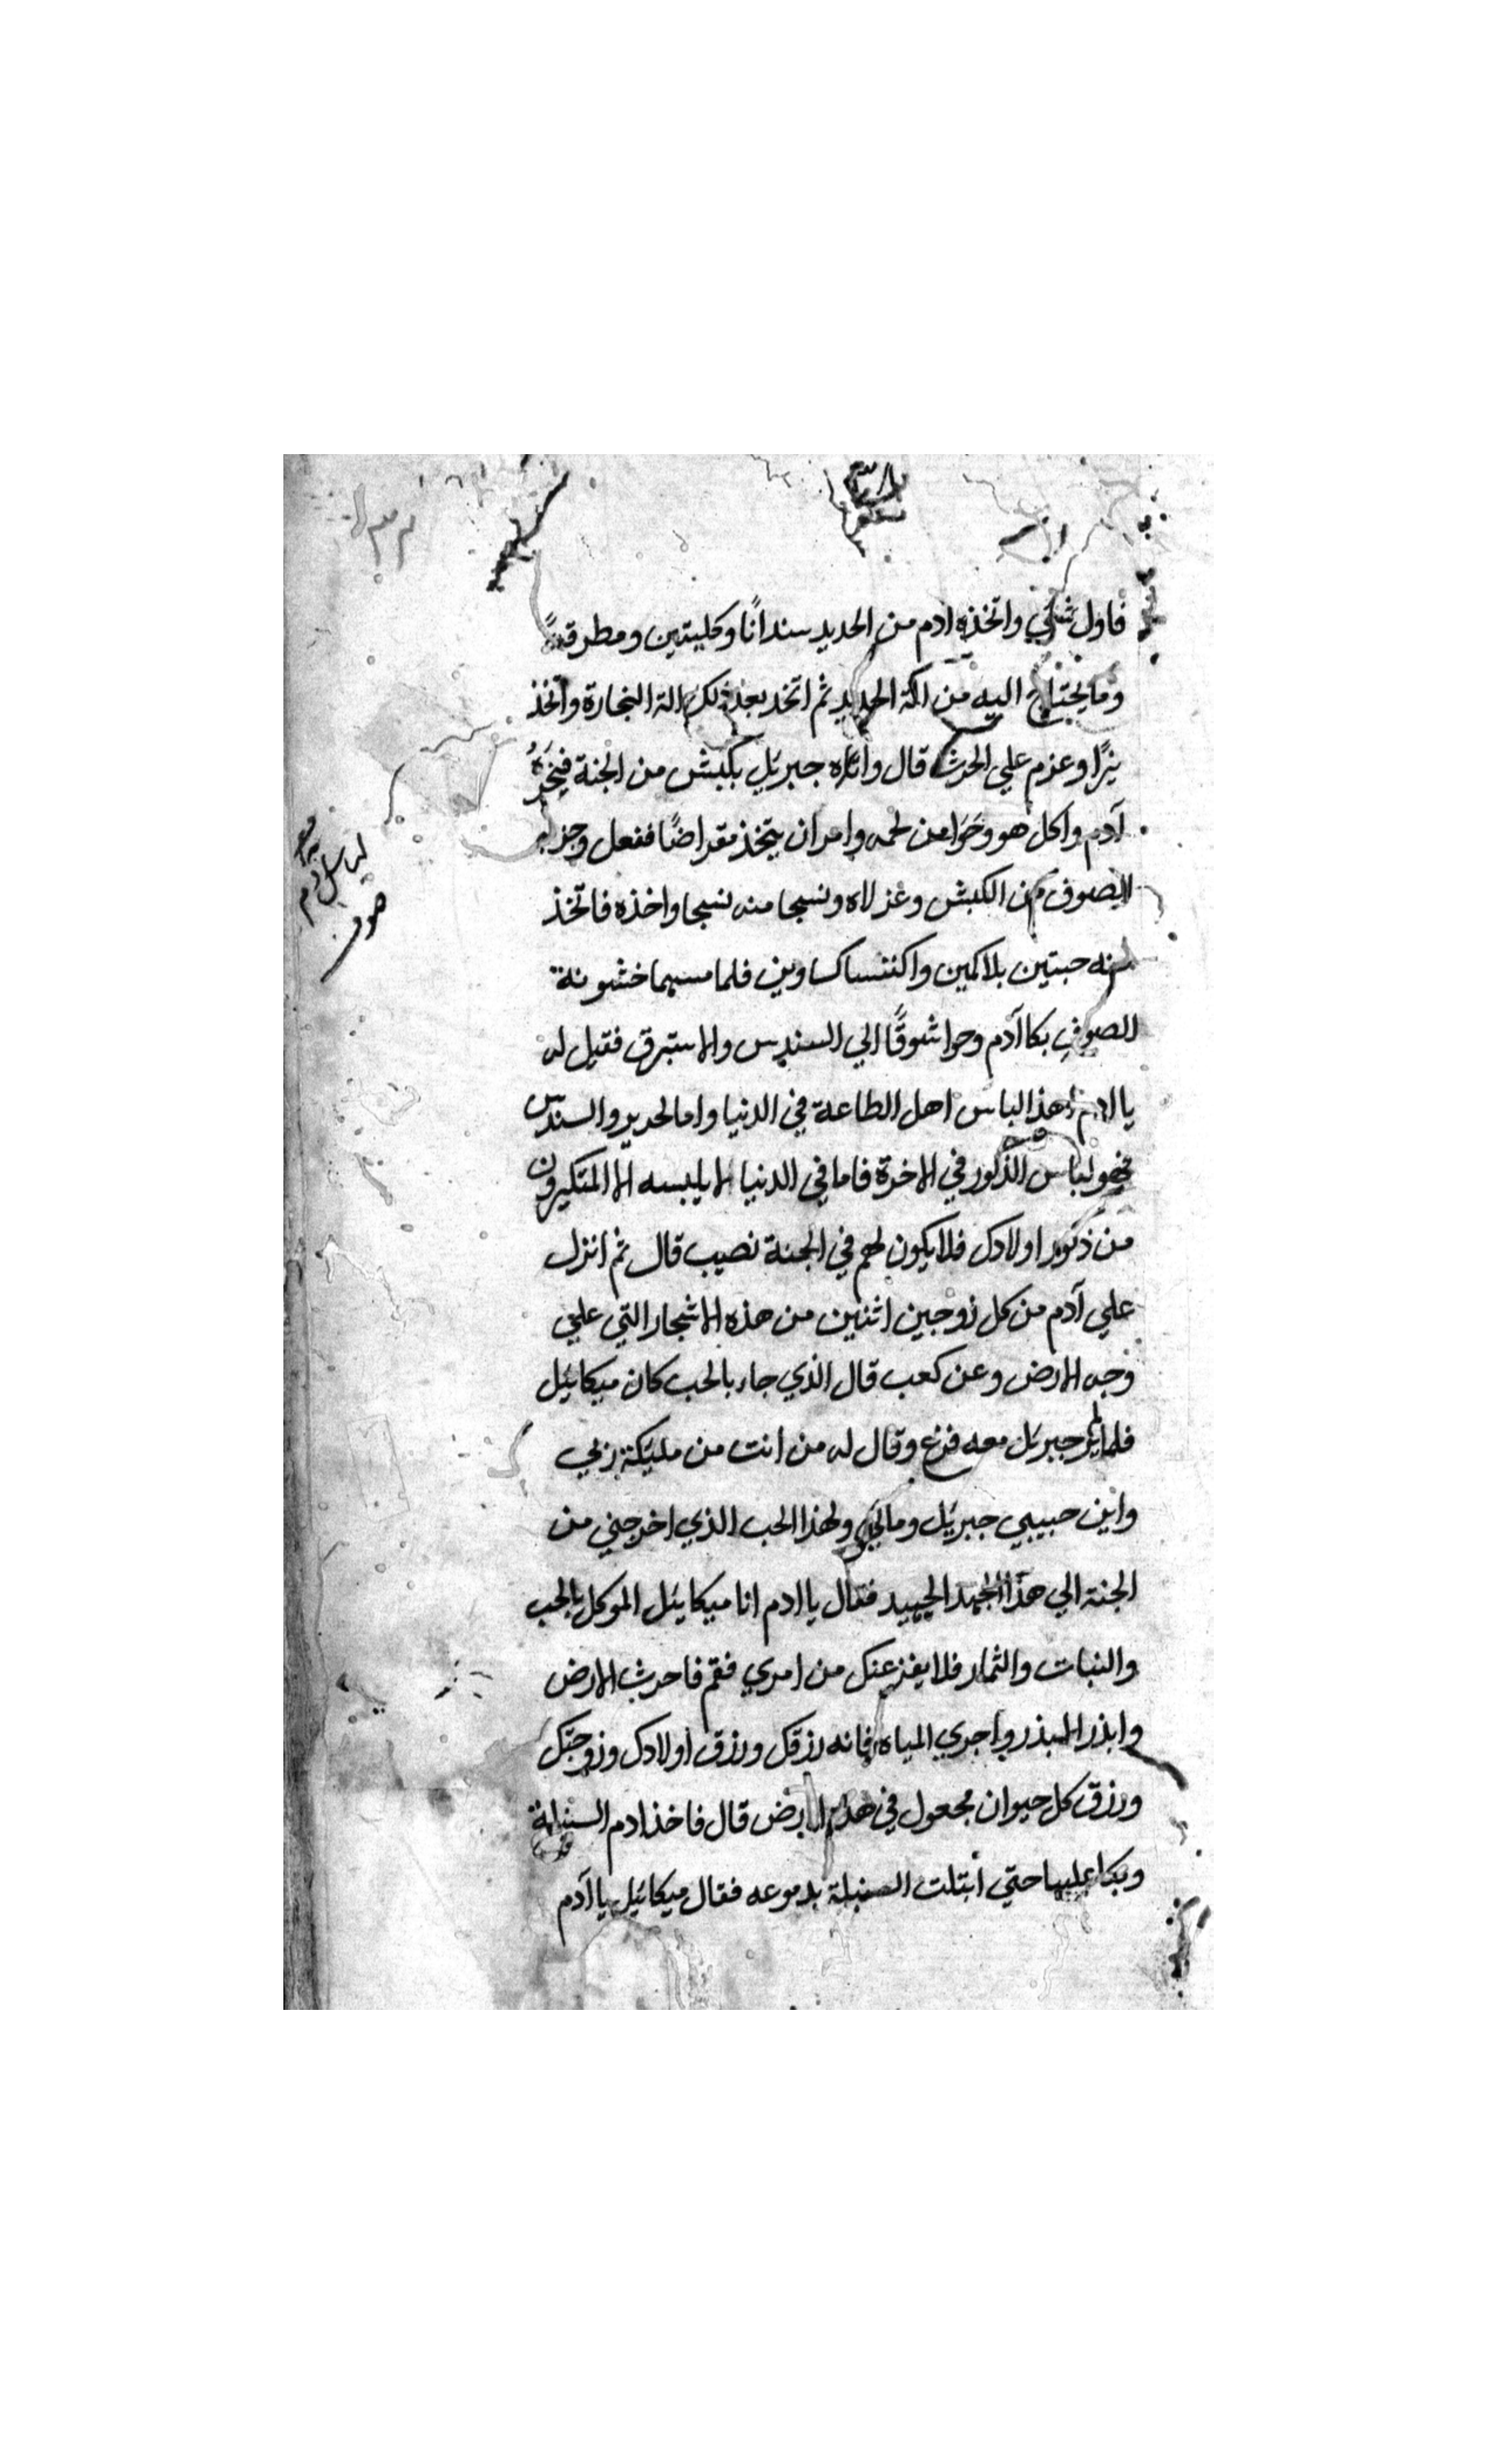 فاول شي واتخذه ادم من الحديد سندانًا وكلبتين ومطرقةً
وما يحتاج اليه من الة الحديد ثم اتخد بعد ذلك الة النجارة واتخذ
نيرًا وعزم علي الحرث قال واتاه جبريل بكبش من الجنة فنحره
آدم واكل هو وحوا من لحمه وامر ان يتخذ مقراضًا ففعل وجز به
الصوف من الكبش وغزلاه ونسجا منه نسجا واخذه فاتخذ
منه جبتين بلا كمين واكتسا كساوين فلما مسهما خشونة
الصوف بكا آدم وحوا شوقًا الي السندس والاستبرق فقيل له
يا ادم هذا لباس اهل الطاعة في الدنيا واما الحرير والسندس
فهو لباس الذكور في الاخرة فاما في الدنيا لا يلبسه الا المتكبرون
من ذكور اولادك فلا يكون لهم في الجنة نصيب قال ثم انزل
علي آدم من كل زوجين اثنين من هذه الاشجار التي علي
وجه الارض وعن كعب قال الذي جاء بالحب كان ميكائيل
فلما لم ير جبريل معه فزع وقال له من انت من مليكة ربي
واين حبيبي جبريل ومالي ولهذا الحب الذي اخرجني من
الجنة الي هذا الجهد الجهيد فقال يا ادم انا ميكائيل الموكل بالحب
والنبات والثمار فلا يفزعنك من امري فقم فاحرث الارض
وابذر البذر واجري المياه فانه رزقك ورزق اولادك وزوجتك
ورزق كل حيوان مجعول في هذه الارض قال فاخذ ادم السنبلة
وبكا عليها حتي ابتلت السنبلة بدموعه فقال ميكائيل يا آدم
لباس ادم
صوف